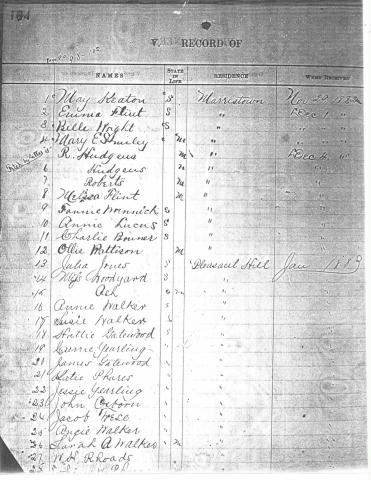 184
V. RECORD OF
NAMES STATE IN LIFE RESIDENCE WHEN RECEIVED
1 May Keaton S Marristown Nov 29
2 Emma Flint S " Dec 1 "
3 Belle Wright S " " "
4 Mary E Smiley m " " "
5 R. Hudgens m " Dec 4 "
6 Hudgens m "
7 Roberts m "
8 Melissa Flint m "
9 Fannie Wannick S "
10 Annie Lucus S "
11 Charlie Bonner S "
12 Ollie Pattison m "
13 Julia Jones S Pleasant Hill Jan
14 Woodyard S
15 Ash m
16 Annie Walker
17 Susie Walker
18 Hattie Gatewood
19 Carrie Yearling
21 James Gatewood
21 Katie Phares
22 Jessie Yearling
23 John
24 Jacob West
25 Angie Walker
26 Sarah A Walker m
27 W. H. Rhoads